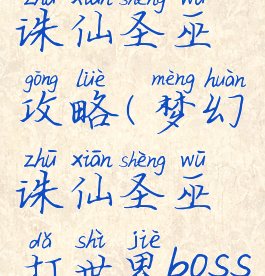 zhū xiān shèng wū
诛仙圣巫
gōng lüè mèng huàn
攻略(梦幻
zhū xiān shèng wū
诛仙圣巫
dǎ shì jiè
打世界boss